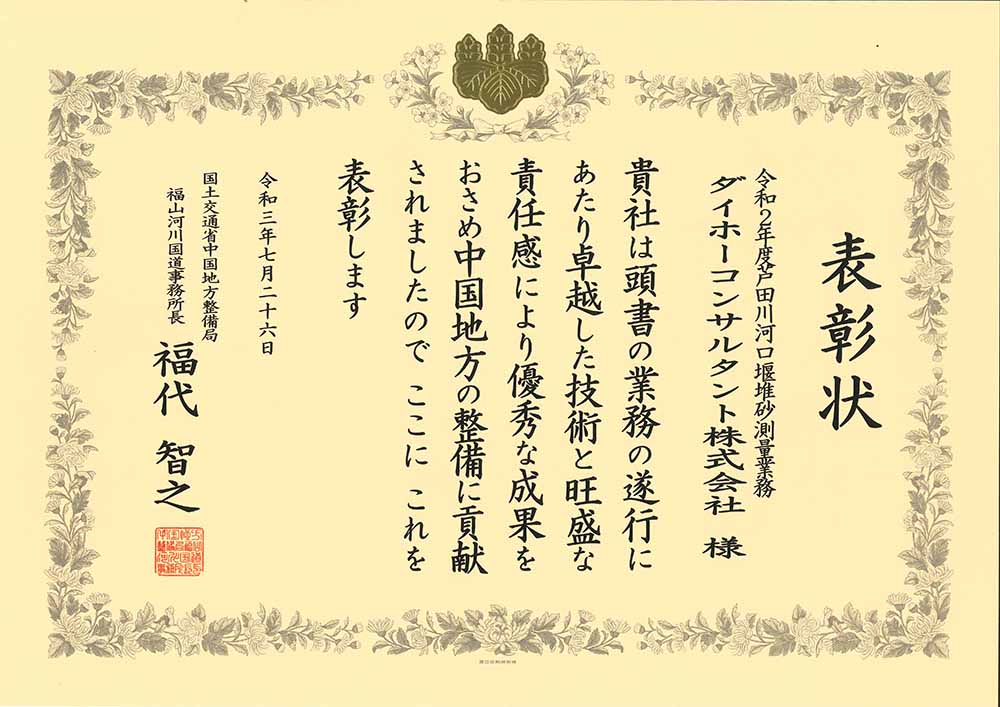 表彰状
令和2年度芦田川河口堰堆砂測量業務
ダイホーコンサルタント株式会社 様
貴社は頭書の業務の遂行に
あたり卓越した技術と旺盛な
責任感により優秀な成果を
おさめ中国地方の整備に貢献
されましたので ここに これを
表彰します
令和三年七月二十六日
国土交通省中国地方整備局
福山河川国道事務所長
福代 智之